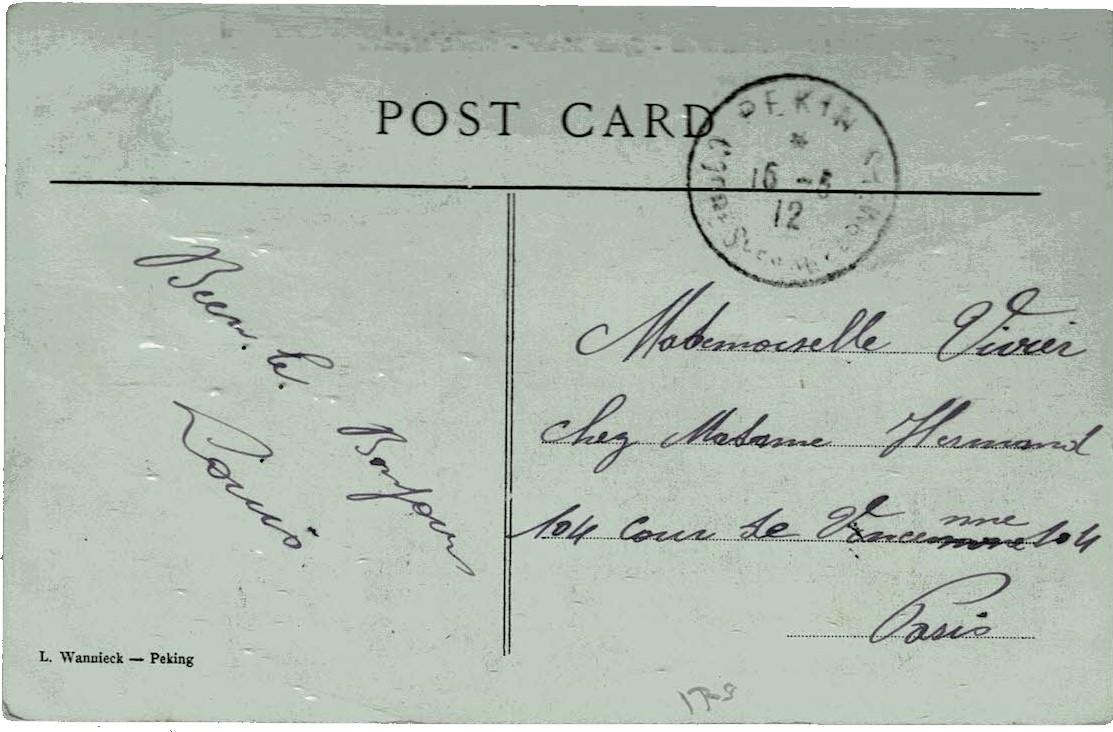 POST CARD
PEKIN
*
16 -5
12
Bien. le. Bonjour
Louis
Mademoiselle Vivier
chez Madame Hermand
104 cour de Vincenne 104
Paris
L. Wannieck — Peking